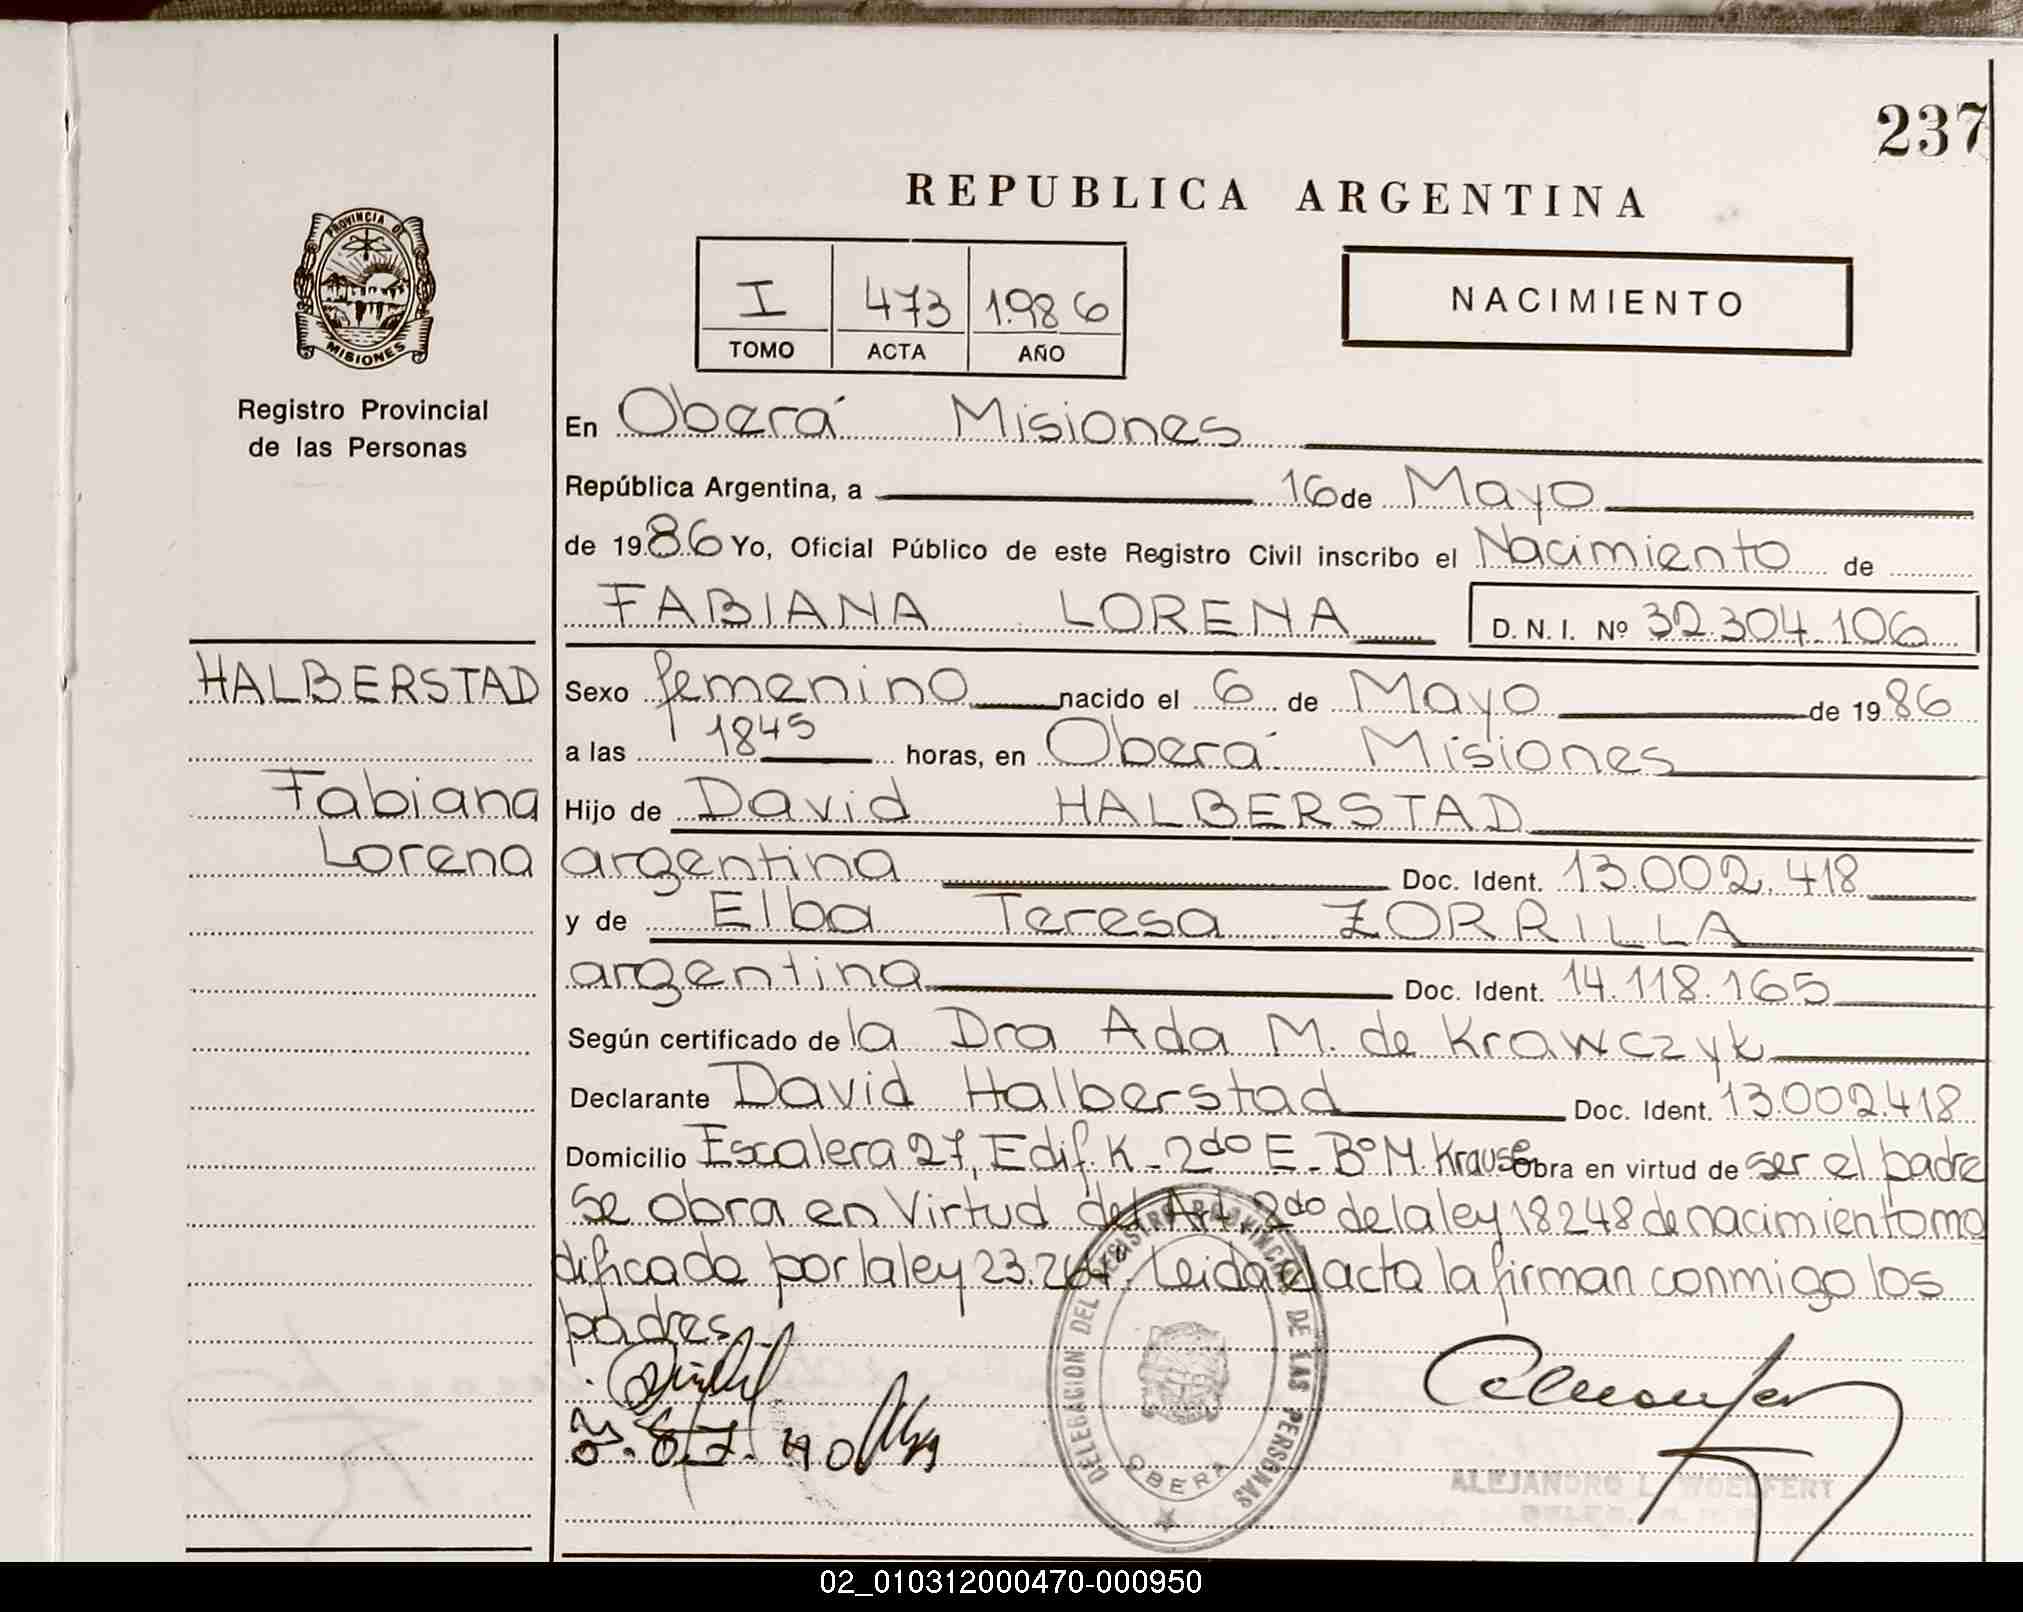 237
REPUBLICA ARGENTINA
PROVINCIA DE
MISIONES
Registro Provincial
de las Personas
I 473 1.986
TOMO ACTA AÑO
NACIMIENTO
En Oberá Misiones
República Argentina, a 16 de Mayo
de 1986 Yo, Oficial Público de este Registro Civil inscribo el Nacimiento de
FABIANA LORENA D. N. I. Nº 32.304.106
HALBERSTAD
Fabiana
Lorena
Sexo femenino nacido el 6 de Mayo de 1986
a las 1845 horas, en Oberá Misiones
Hijo de David HALBERSTAD
argentina Doc. Ident. 13.002.418
y de Elba Teresa ZORRILLA
argentina Doc. Ident. 14.118.165
Según certificado de la Dra Ada M. de Krawczyk
Declarante David Halberstad Doc. Ident. 13.002.418
Domicilio Escalera 27, Edif. K - 2do E - Bº M. Krause Obra en virtud de ser el padre
Se obra en Virtud del Art. 2do de la ley 18248 de nacimiento mo
dificada por la ley 23.264. Leida el acta la firman conmigo los
padres
DELEGACION DEL REGISTRO PROVINCIAL DE LAS PERSONAS
OBERA
ALEJANDRO L. WOELFERT
02_010312000470-000950